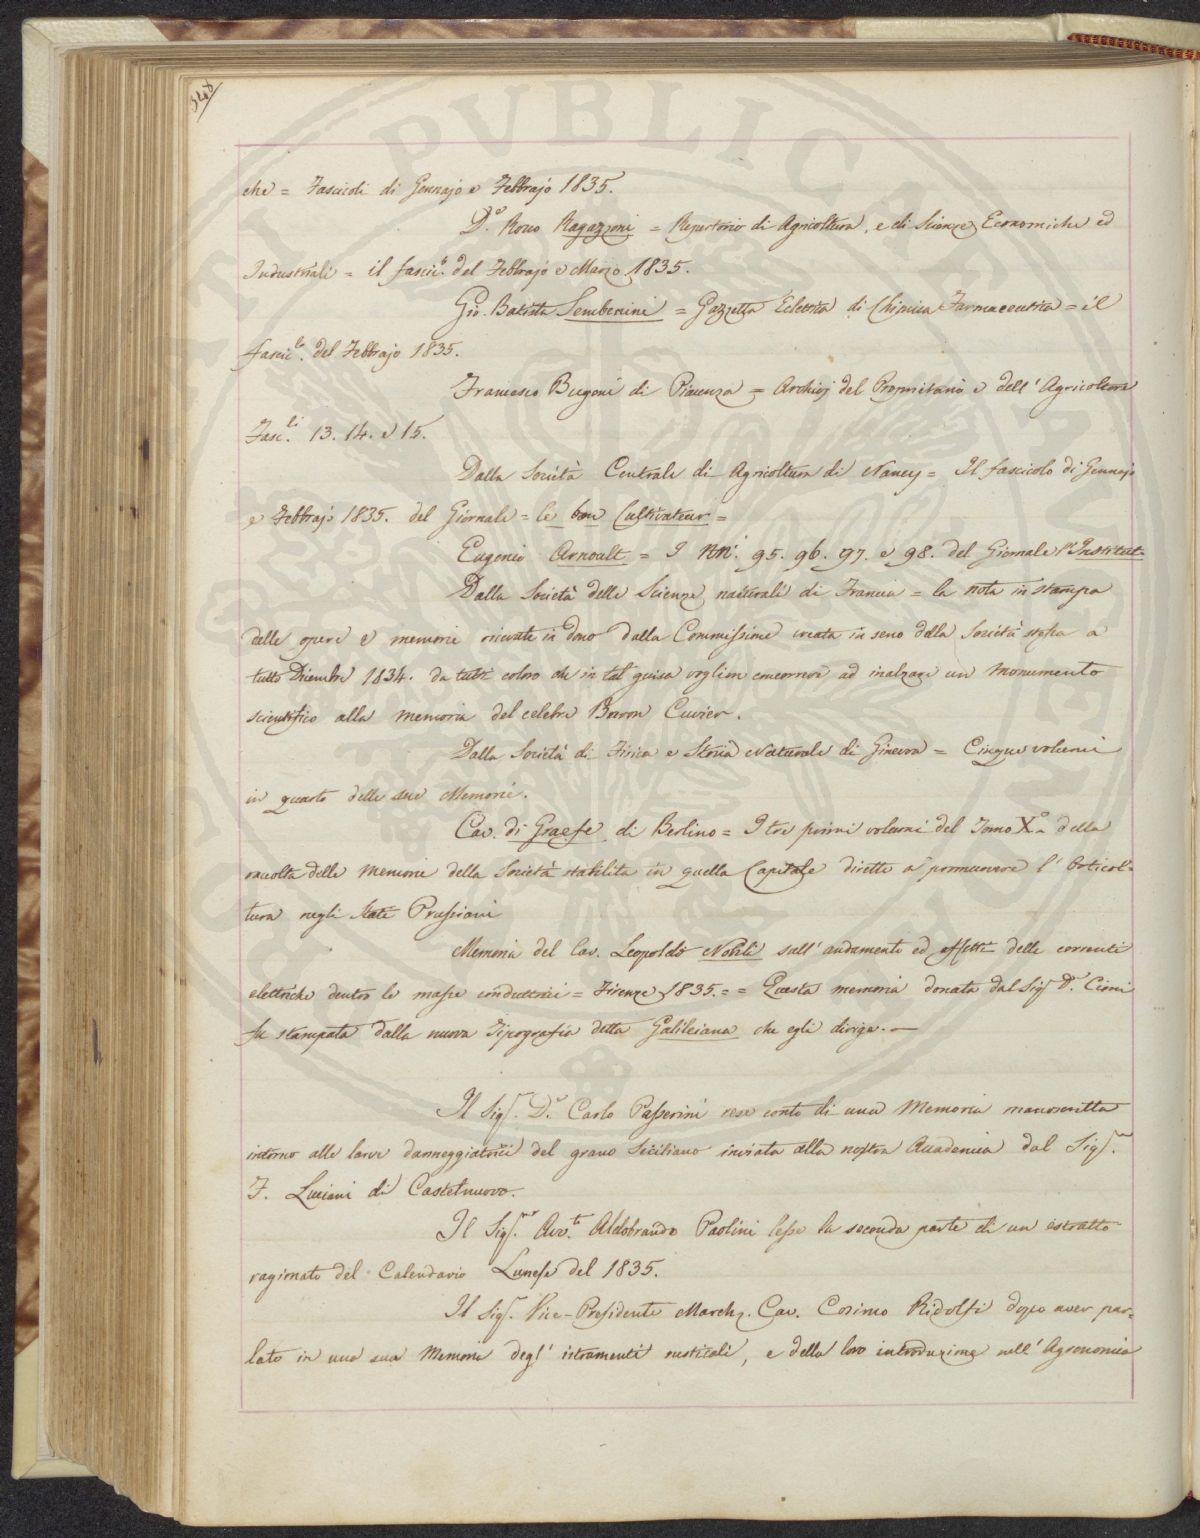 348
che = Fascicoli di Gennajo e Febbrajo 1835.
D.r Rocco Ragazzoni = Repertorio di Agricoltura, e di Scienze Economiche ed
Industriali = il fascic.o del Febbrajo e Marzo 1835.
Gio. Batista Sembenini = Gazzetta Eclettica di Chimica Farmaceutica = il
fascic.lo del Febbrajo 1835.
Francesco Bugoni di Piacenza = Archivj del Proprietario e dell' Agricoltore
Fasc.li 13. 14. e 15.
Dalla Società Centrale di Agricoltura di Nancy = Il fascicolo di Gennajo
e Febbrajo 1835. del Giornale = le bon Cultivateur =
Eugenio Arnoult = I NN.i 95. 96. 97. e 98. del Giornale l'Institut
Dalla Società delle Scienze naturali di Francia = la nota in stampa
delle opere e memorie ricevute in dono dalla Commissione creata in seno della Società stessa a
tutto Dicembre 1834. da tutti coloro che in tal guisa voglion concorrere ad inalzare un monumento
scientifico alla memoria del celebre Baron Cuvier.
Dalla Società di Fisica e Storia Naturale di Ginevra = Cinque volumi
in quarto delle sue Memorie.
Cav. di Graefe di Berlino = I tre primi volumi del Tomo X.o della
raccolta delle memorie della Società stabilita in quella Capitale diretta a promuovere l' Orticol=
tura negli Stati Prussiani
Memoria del Cav. Leopoldo Nobili sull' andamento ed effetti delle correnti
elettriche dentro le masse conduttrici = Firenze 1835. = = Questa memoria donata dal Sig.r D.r Cioni
fu stampata dalla nuova Tipografia detta Galileiana che egli dirige. —
Il Sig.r D.r Carlo Passerini rese conto di una Memoria manoscritta
intorno alle larve danneggiatrici del grano Siciliano inviata alla nostra Accademia dal Sig.r
F. Luciani di Castelnuovo.
Il Sig.r Avv.to Aldobrando Paolini lesse la seconda parte di un estratto
ragionato del Calendario Lunese del 1835.
Il Sig.r Vice-Presidente March. Cav. Cosimo Ridolfi dopo aver par=
lato in una sua Memoria degl' istrumenti rusticali, e della loro introduzione nell' Agronomia